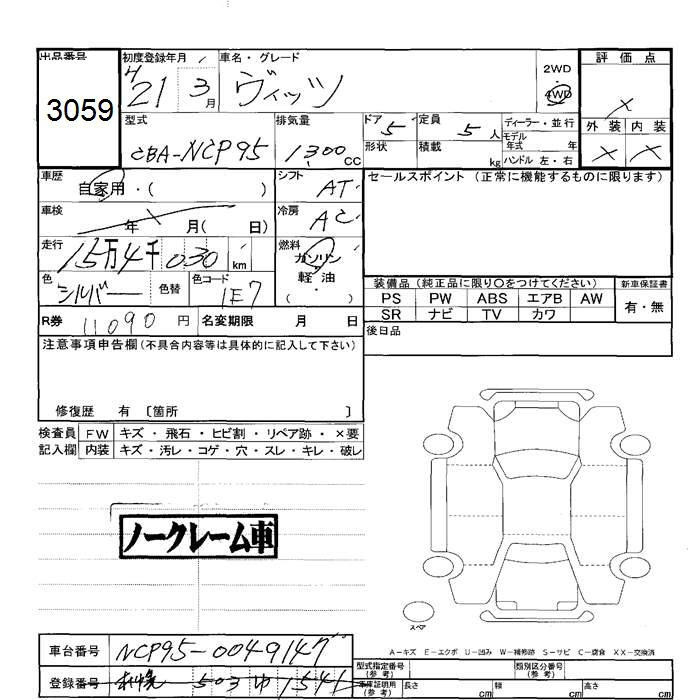 出品番号 3059
初度登録年月 H 21 3 月
車名・グレード ヴィッツ
2WD
4WD
評価点 X
外装 内装
X X
型式 CBA-NCP95
排気量 1300 CC
ドア 5
形状
定員 5 人
積載 kg
ディーラー・並行
モデル年式 年
ハンドル 左・右
車歴 自家用・( )
シフト AT
車検 年 月( 日)
冷房 AC
走行 15万4千030 km
燃料 ガソリン
軽・油
( )
色 シルバー 色替
色コード 1E7
R券 11090 円 名変期限 月 日
セールスポイント (正常に機能するものに限ります)
装備品 (純正品に限り〇をつけてください)
新車保証書
PS PW ABS エアB AW
有・無
SR ナビ TV カワ
後日品
注意事項申告欄(不具合内容等は具体的に記入して下さい)
修復歴 有 〔箇所 〕
検査員 FW キズ・飛石・ヒビ割・リペア跡・×要
記入欄 内装 キズ・汚レ・コゲ・穴・スレ・キレ・破レ
ノークレーム車
スペア
A-キズ E-エクボ U-凹み W-補修跡 S-サビ C-腐食 XX-交換済
車台番号 NCP95-0049147
登録番号 札幌 503 ゆ 1541
型式指定番号
(参考)
類別区分番号
(参考)
車庫証明用
(参考)
長さ cm 幅 cm 高さ cm